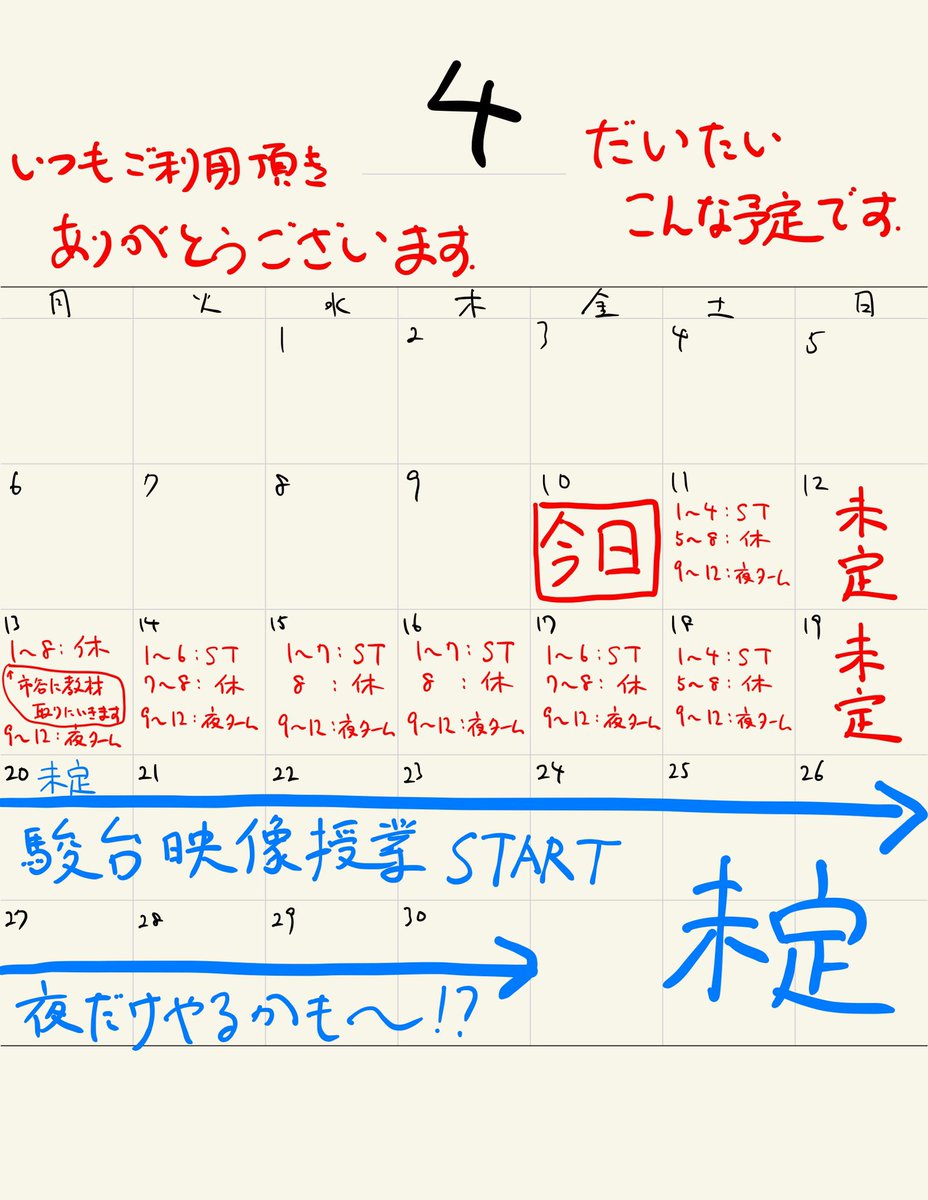 4
いつもご利用頂き
ありがとうございます.
だいたい
こんな予定です.
月 火 水 木 金 土 日
1 2 3 4 5
6 7 8 9 10 11 12
今日
1〜4:ST
5〜8:休
9〜12:夜ターム
未定
13 14 15 16 17 18 19
1〜8:休
↑市谷に教材
取りにいきます
9〜12:夜ターム
1〜6:ST
7〜8:休
9〜12:夜ターム
1〜7:ST
8:休
9〜12:夜ターム
1〜7:ST
8:休
9〜12:夜ターム
1〜6:ST
7〜8:休
9〜12:夜ターム
1〜4:ST
5〜8:休
9〜12:夜ターム
未定
20 未定 21 22 23 24 25 26
駿台映像授業 START
27 28 29 30
未定
夜だけやるかも〜!?